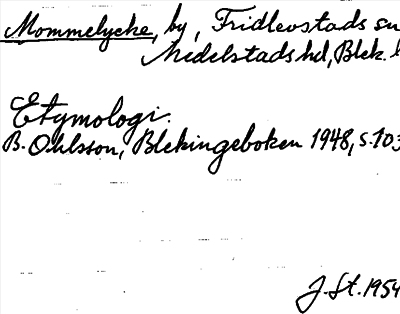 Mommelycke, by, Fridlevstads sn
Medelstads hd, Blek. l
Etymologi:
B. Ohlsson, Blekingeboken 1948, s. 103
J. St. 1954